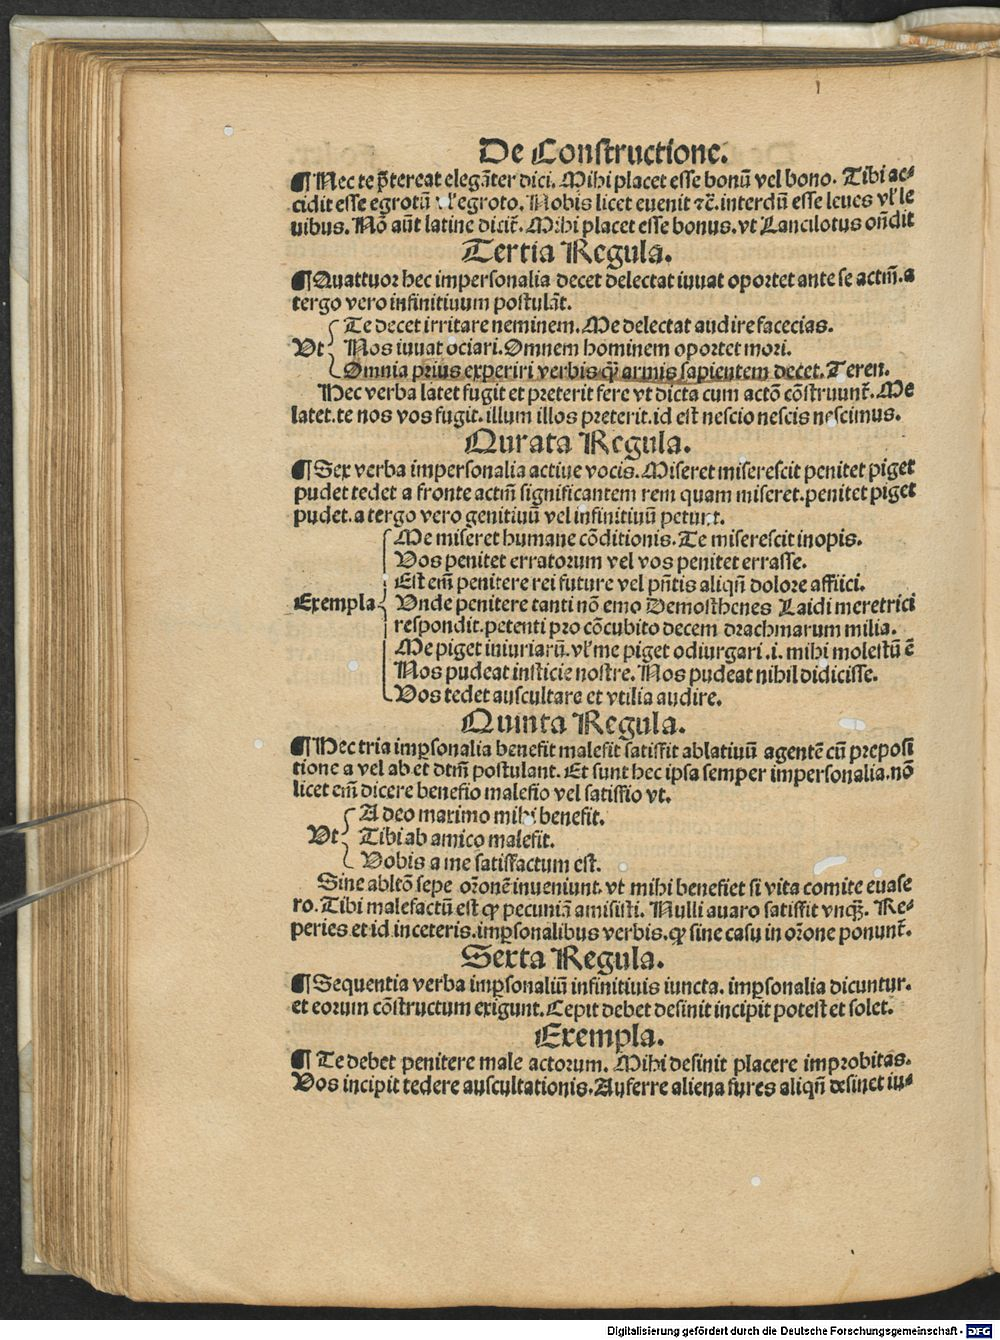 De Constructione.
¶ Nec te p̄tereat elegāter dici. Mihi placet esse bonū vel bono. Tibi ac⸗
cidit esse egrotū vl' egroto. Nobis licet euenit ⁊c̄. interdū esse leues vl' le
uibus. Nō aūt latine dicit̄. Mihi placet esse bonus. vt Lancilotus on̄dit
Tertia Regula.
¶ Quattuor hec impersonalia decet delectat iuuat oportet ante se actm̄. a
tergo vero infinitiuum postulāt.
Te decet irritare neminem. Me delectat audire facecias.
Vt Nos iuuat ociari. Omnem hominem oportet mori.
Omnia prius experiri verbis q̄ȝ armis sapientem decet. Teren.
Hec verba latet fugit et preterit fere vt dicta cum actō cōstruunt̄. Me
latet. te nos vos fugit. illum illos preterit. id est nescio nescis nescimus.
Qurata Regula.
¶ Sex verba impersonalia actiue vocis. Miseret miserescit penitet piget
pudet tedet a fronte actm̄ significantem rem quam miseret. penitet piget
pudet. a tergo vero genitiuū vel infinitiuū petunt.
Me miseret humane cōditionis. Te miserescit inopis.
Vos penitet erratorum vel vos penitet errasse.
Est em̄ penitere rei future vel pn̄tis aliqn̄ dolore affici.
Exempla Vnde penitere tanti nō emo Demosthenes Laidi meretrici
respondit. petenti pro cōcubito decem drachmarum milia.
Me piget iniuriarū. vl' me piget odiurgari .i. mihi molestū ē
Nos pudeat insticie nostre. Nos pudeat nihil didicisse.
Vos tedet auscultare et vtilia audire.
Quinta Regula.
¶ Hec tria imp̱sonalia benefit malefit satisfit ablatiuū agentē cū preposi
tione a vel ab et dtm̄ postulant. Et sunt hec ipsa semper impersonalia. nō
licet em̄ dicere benefio malefio vel satisfio vt.
A deo maximo mihi benefit.
Vt Tibi ab amico malefit.
Vobis a me satisfactum est.
Sine abltō sepe or̄onē inueniunt. vt mihi benefiet si vita comite euase
ro. Tibi malefactū est ꝙ pecuniā amisisti. Nulli auaro satisfit vnq̄ȝ. Re⸗
peries et id in ceteris. imp̱sonalibus verbis. ꝙ sine casu in or̄one ponunt̄.
Sexta Regula.
¶ Sequentia verba imp̱sonaliū infinitiuis iuncta. imp̱sonalia dicuntur.
et eorum cōstructum exigunt. Cepit debet desinit incipit potest et solet.
Exempla.
¶ Te debet penitere male actorum. Mihi desinit placere improbitas.
Vos incipit tedere auscultationis. Auferre aliena fures aliqn̄ desinet iu⸗
Digitalisierung gefördert durch die Deutsche Forschungsgemeinschaft - DFG